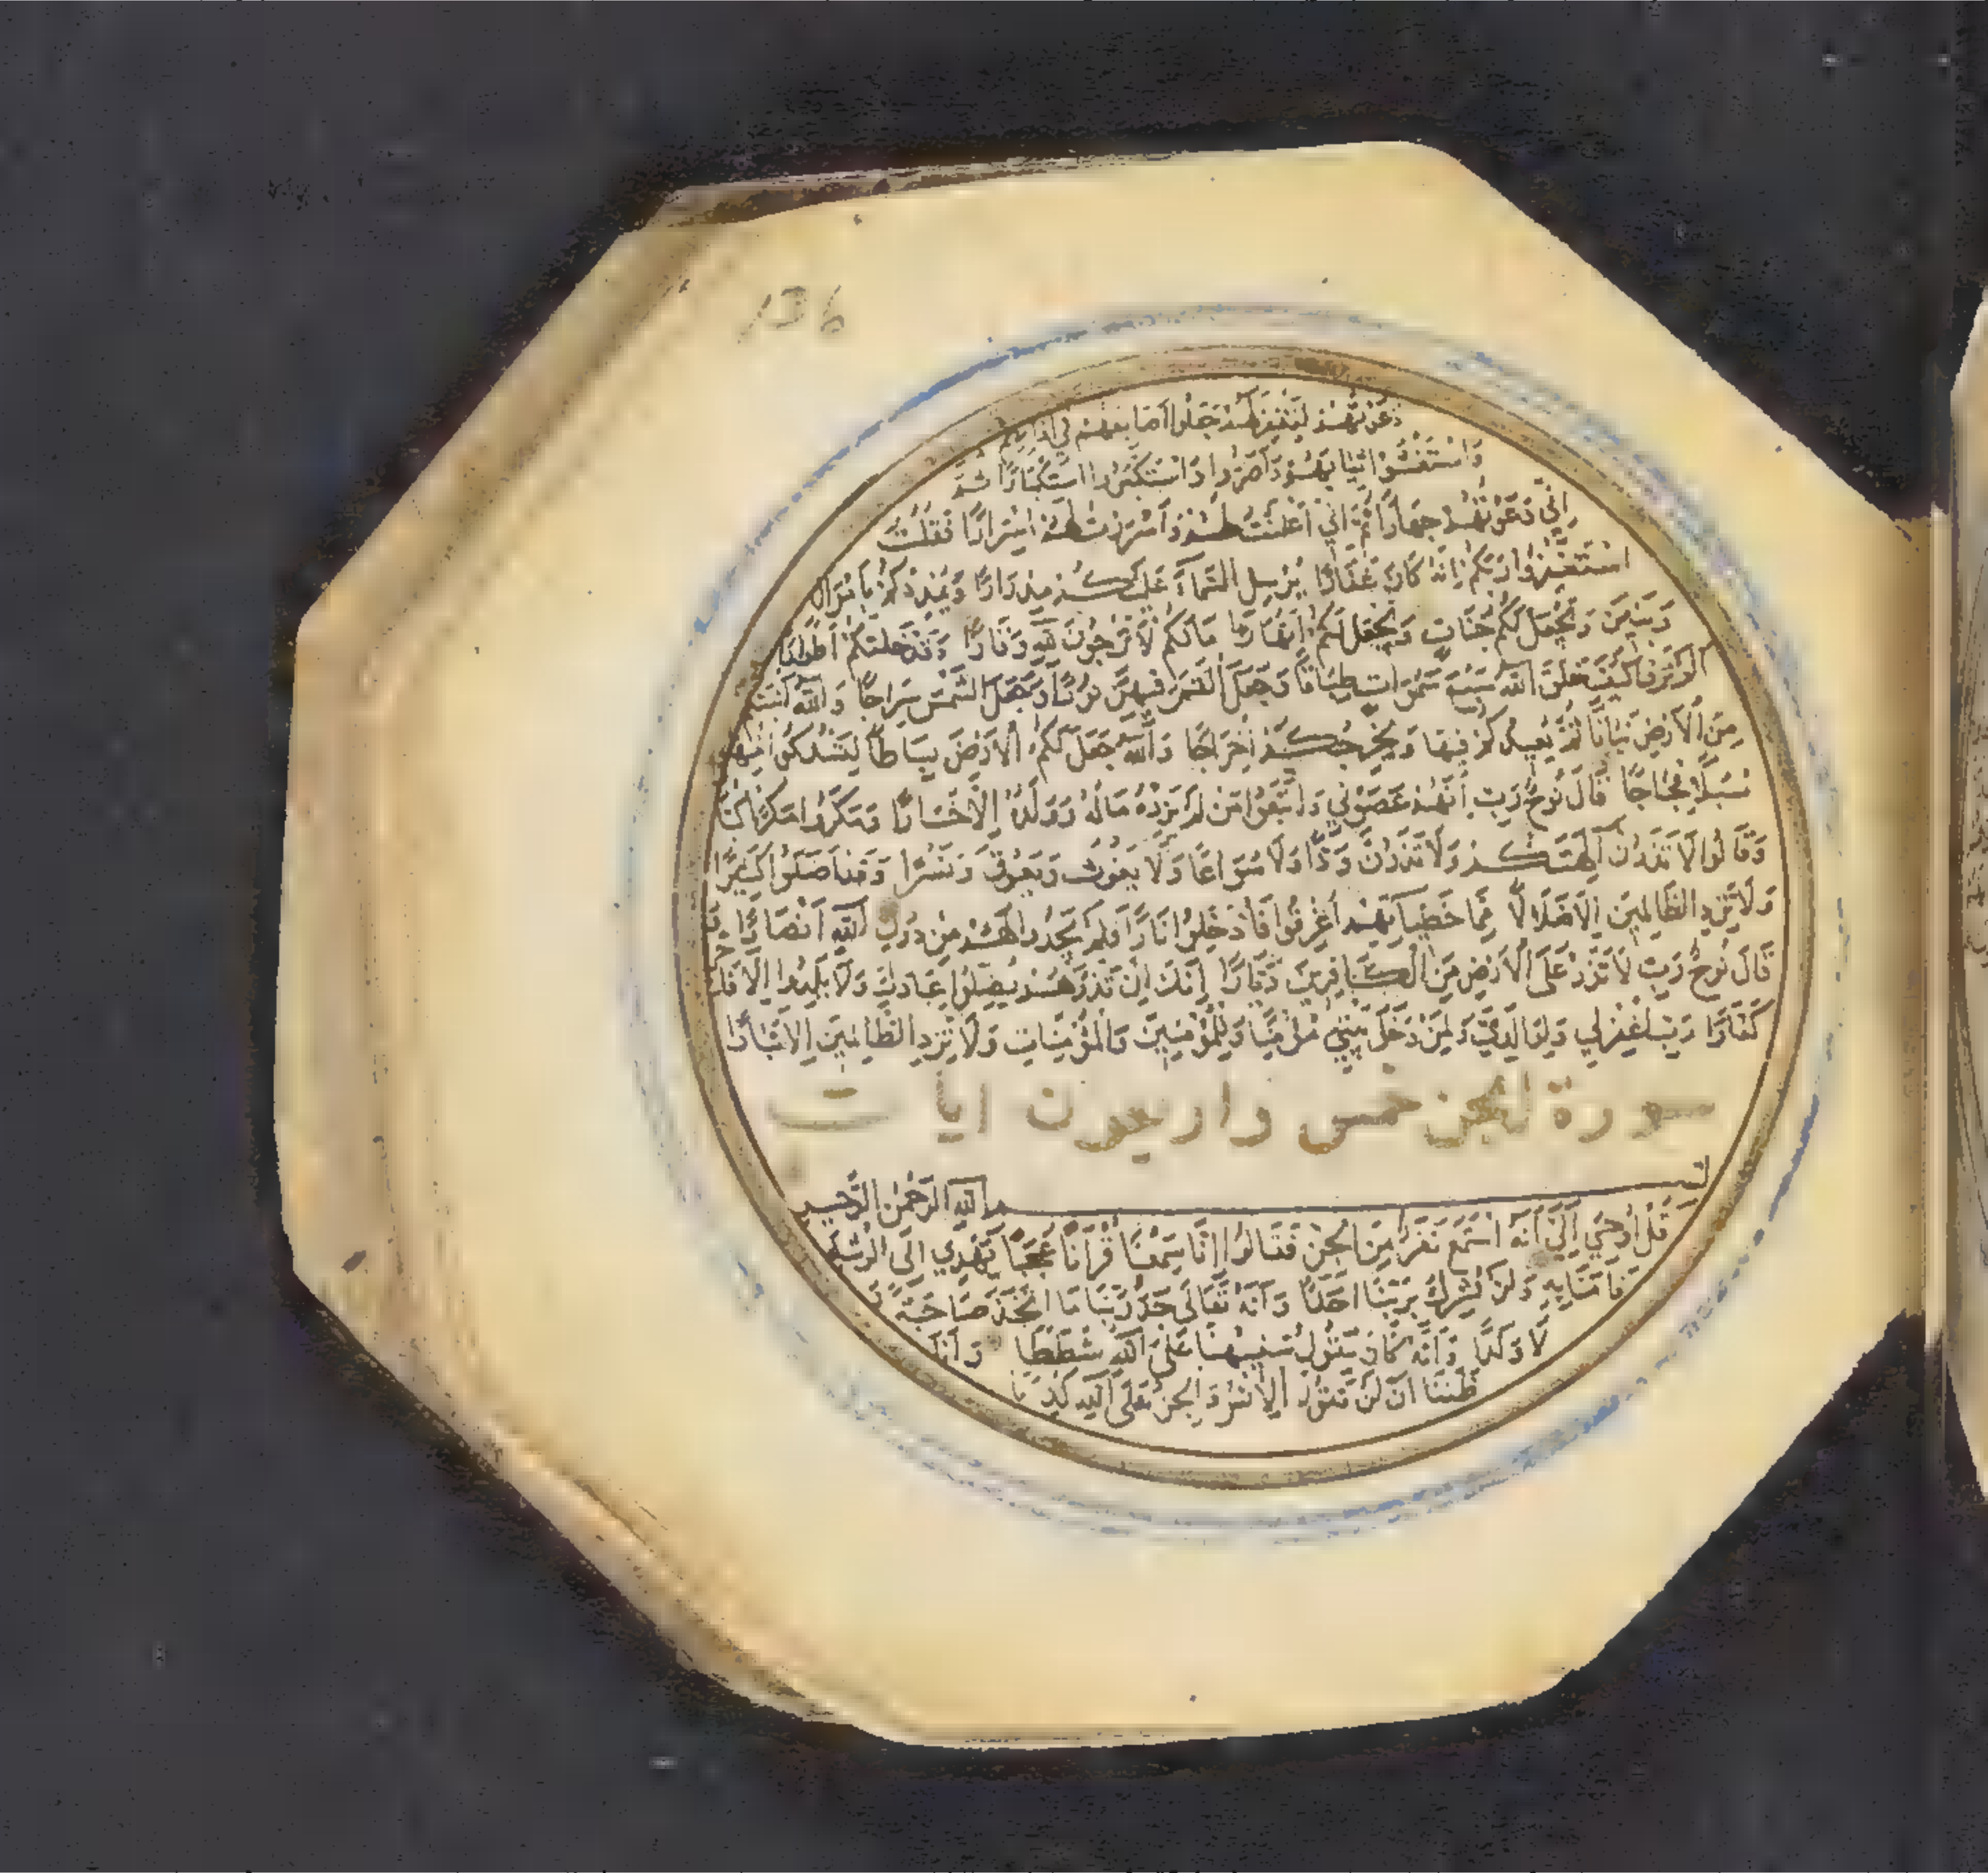 136
دَعَوْتُهُمْ لِتَغْفِرَ لَهُمْ جَعَلُوا اَصَابِعَهُمْ فِي اٰذَانِهِمْ
وَاسْتَغْشَوْا ثِيَابَهُمْ وَاَصَرُّوا وَاسْتَكْبَرُوا اسْتِكْبَارًا ثُمَّ
اِنِّي دَعَوْتُهُمْ جِهَارًا ثُمَّ اِنِّي اَعْلَنْتُ لَهُمْ وَاَسْرَرْتُ لَهُمْ اِسْرَارًا فَقُلْتُ
اسْتَغْفِرُوا رَبَّكُمْ اِنَّهُ كَانَ غَفَّارًا يُرْسِلِ السَّمَآءَ عَلَيْكُمْ مِدْرَارًا وَيُمْدِدْكُمْ بِاَمْوَالٍ
وَبَنِينَ وَيَجْعَلْ لَكُمْ جَنَّاتٍ وَيَجْعَلْ لَكُمْ اَنْهَارًا مَا لَكُمْ لَا تَرْجُونَ لِلّٰهِ وَقَارًا وَقَدْ خَلَقَكُمْ اَطْوَارًا
اَلَمْ تَرَوْا كَيْفَ خَلَقَ اللّٰهُ سَبْعَ سَمٰوَاتٍ طِبَاقًا وَجَعَلَ الْقَمَرَ فِيهِنَّ نُورًا وَجَعَلَ الشَّمْسَ سِرَاجًا وَاللّٰهُ اَنْبَتَكُمْ
مِنَ الْاَرْضِ نَبَاتًا ثُمَّ يُعِيدُكُمْ فِيهَا وَيُخْرِجُكُمْ اِخْرَاجًا وَاللّٰهُ جَعَلَ لَكُمُ الْاَرْضَ بِسَاطًا لِتَسْلُكُوا مِنْهَا
سُبُلًا فِجَاجًا قَالَ نُوحٌ رَبِّ اِنَّهُمْ عَصَوْنِي وَاتَّبَعُوا مَنْ لَمْ يَزِدْهُ مَالُهُ وَوَلَدُهُ اِلَّا خَسَارًا وَمَكَرُوا مَكْرًا كُبَّارًا
وَقَالُوا لَا تَذَرُنَّ اٰلِهَتَكُمْ وَلَا تَذَرُنَّ وَدًّا وَلَا سُوَاعًا وَلَا يَغُوثَ وَيَعُوقَ وَنَسْرًا وَقَدْ اَضَلُّوا كَثِيرًا
وَلَا تَزِدِ الظَّالِمِينَ اِلَّا ضَلَالًا مِمَّا خَطِيٓاٰتِهِمْ اُغْرِقُوا فَاُدْخِلُوا نَارًا فَلَمْ يَجِدُوا لَهُمْ مِنْ دُونِ اللّٰهِ اَنْصَارًا وَ
قَالَ نُوحٌ رَبِّ لَا تَذَرْ عَلَى الْاَرْضِ مِنَ الْكَافِرِينَ دَيَّارًا اِنَّكَ اِنْ تَذَرْهُمْ يُضِلُّوا عِبَادَكَ وَلَا يَلِدُوا اِلَّا فَاجِرًا
كَفَّارًا رَبِّ اغْفِرْلِي وَلِوَالِدَيَّ وَلِمَنْ دَخَلَ بَيْتِيَ مُؤْمِنًا وَلِلْمُؤْمِنِينَ وَالْمُؤْمِنَاتِ وَلَا تَزِدِ الظَّالِمِينَ اِلَّا تَبَارًا
سورة الجن خمس واربعون ايات
بسم اللّٰهِ الرَّحْمٰنِ الرَّحِيمِ
قُلْ اُوحِيَ اِلَيَّ اَنَّهُ اسْتَمَعَ نَفَرٌ مِنَ الْجِنِّ فَقَالُوا اِنَّا سَمِعْنَا قُرْاٰنًا عَجَبًا يَهْدِي اِلَى الرُّشْدِ
فَاٰمَنَّا بِهِ وَلَنْ نُشْرِكَ بِرَبِّنَا اَحَدًا وَاَنَّهُ تَعَالٰى جَدُّ رَبِّنَا مَا اتَّخَذَ صَاحِبَةً وَ
لَا وَلَدًا وَاَنَّهُ كَانَ يَقُولُ سَفِيهُنَا عَلَى اللّٰهِ شَطَطًا وَاَنَّا
ظَنَنَّا اَنْ لَنْ تَقُولَ الْاِنْسُ وَالْجِنُّ عَلَى اللّٰهِ كَذِبًا